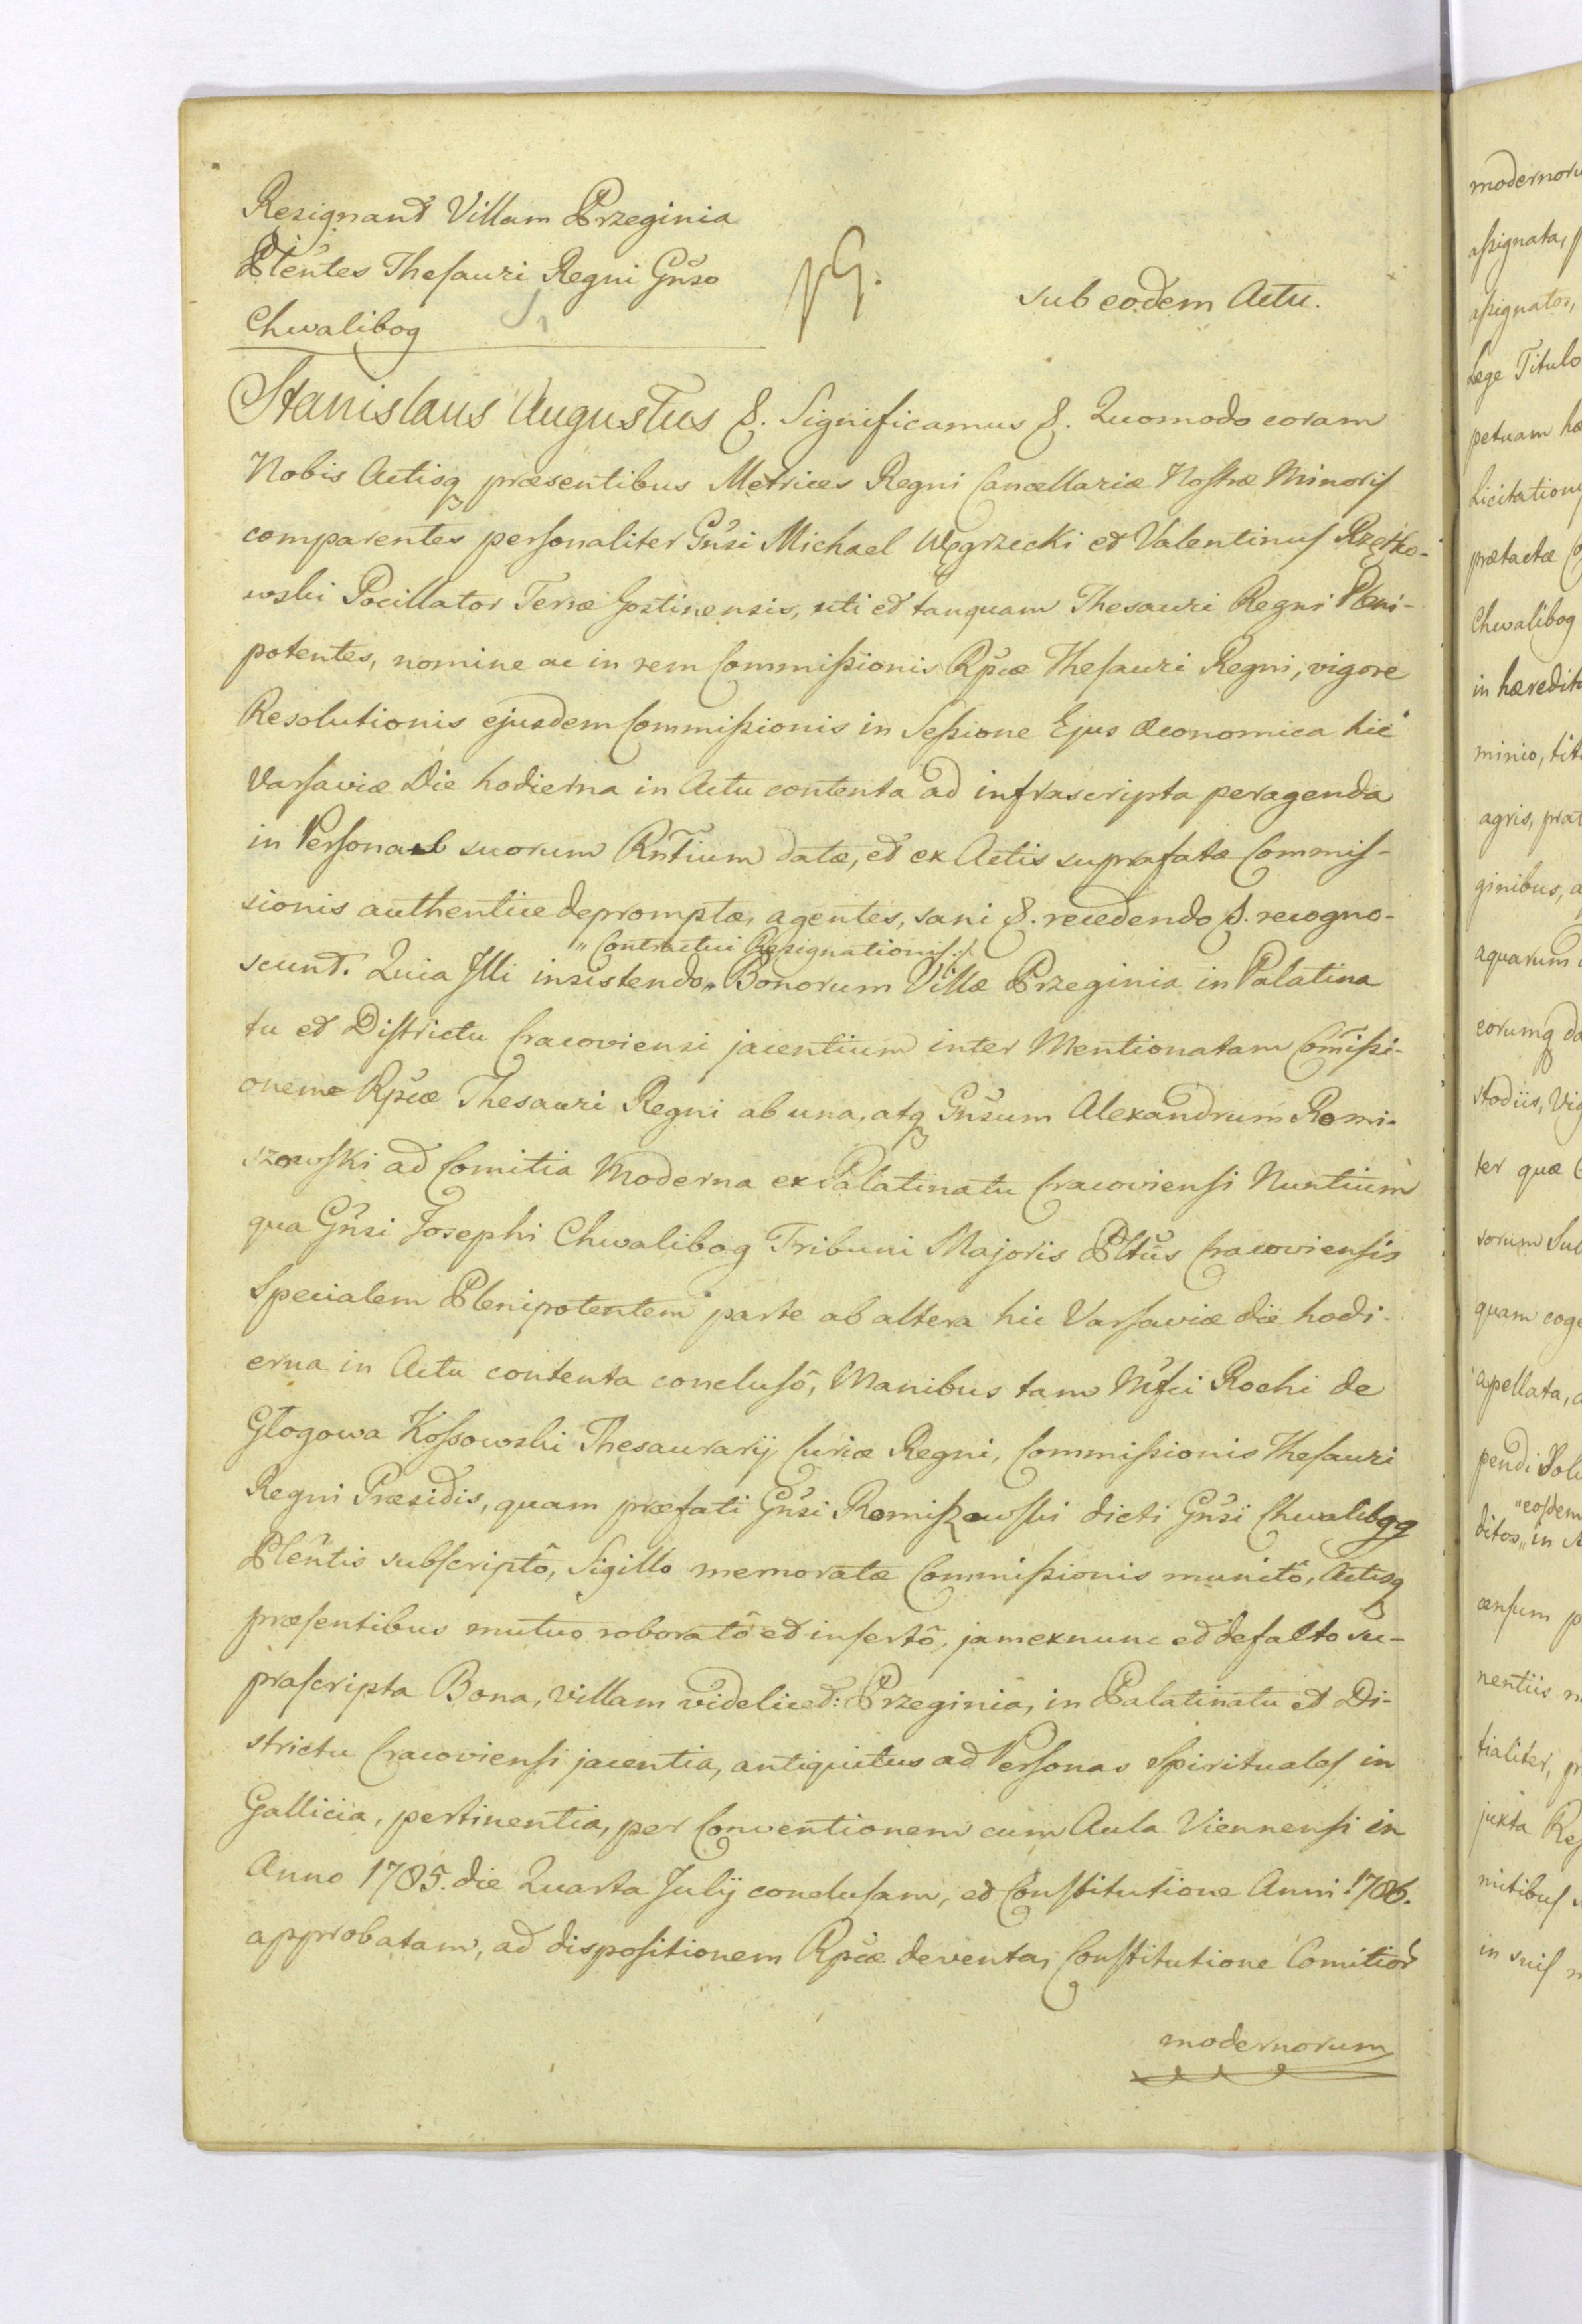 Resignant Villam Przeginia
Pleñtes Thesauri Regni Gñso
Chwalibog
sub eodem Actu.
Stanislaus Augustus &. Significamus &. Quomodo coram
Nobis Actisq præsentibus Metrices Regni Cancellariæ Nostræ Minoris
comparentes personaliter Gñsi Michael Węgrzecki et Valentinus Rzętko-
wski Pocillator Terræ Gostinensis, uti et tanquam Thesauri Regni Pleni-
potentes, nomine ac in rem Commissionis Rpcæ Thesauri Regni, vigore
Resolutionis ejusdem Commissionis in Sessione Ejus Œconomica hic
Varsaviæ Die hodierna in Actu contenta ad infrascripta peragenda
in Personas suorum Rñtium datæ, et ex Actis suprafatæ Commis-
sionis authentice depromptæ, agentes, sani &. recedendo &. recogno-
„ Contractui Resignationis ./.
scunt. Quia Illi insistendo „ Bonorum Villæ Przeginia in Palatina
tu et Districtu Cracoviensi jacentium inter Mentionatam Com̃issi-
onem Rpcæ Thesauri Regni ab una, atq Gñsum Alexandrum Romi-
szowski ad Comitia Moderna ex Palatinatu Cracoviensi Nuntium
qua Gñsi Josephi Chwalibog Tribuni Majoris Pltus Cracoviensis
Specialem Plenipotentem parte ab altera hic Varsaviæ die hodi-
erna in Actu contenta conclusô, Manibus tam Mfci Rochi de
Głogowa Kossowski Thesaurarij Curiæ Regni, Commissionis Thesauri
Regni Præsidis, quam præfati Gñsi Romiszowski dicti Gñsi Chwalibog
Pleñtis subscriptô, Sigillo memoratæ Commissionis munitô, Actisq
præsentibus mutuo roboratô et insertô, jam ex nunc et de facto su-
prascripta Bona, Villam videlicet: Przeginia, in Palatinatu et Di-
strictu Cracoviensi jacentia, antiquitus ad Personas Spirituales in
Gallicia, pertinentia, per Conventionem cum Aula Viennensi in
Anno 1785. die Quarta Julij conclusam, et Constitutione Anni 1786.
approbatam, ad dispositionem Rpcæ deventa, Constitutione Comitior
modernorum
modernoru
assignata,
assignatos,
Lege Titulo
petuam
Licitation
prætactæ
Chwalibog
in hæredit
minio, tit
agris, prat
ginibus, a
aquarum
eorumq
stodiis, Vig
ter quæ
sorum Sub
quam
apellata,
pendi
„eosdem
ditos „ in
censum p
nentiis
tialiter,
juxta
mitibus
in suis